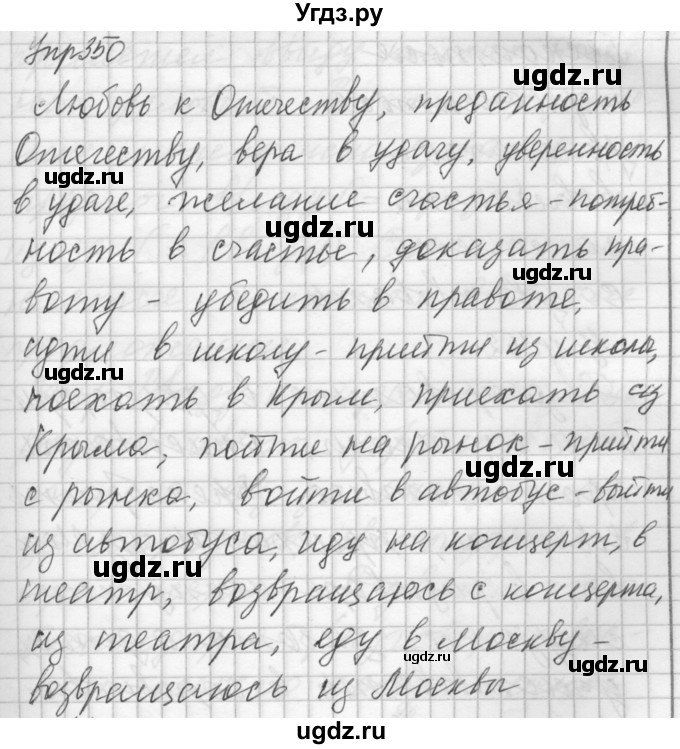 Угдз.ру
Упр350
Любовь к Отечеству, преданность
Отечеству, вера в удачу, уверенность
в удаче, желание счастья - потреб-
ность в счастье, доказать пра-
воту - убедить в правоте,
идти в школу - прийти из школа,
поехать в Крым, приехать из
Крыма, пойти на рынок - прийти
с рынка, войти в автобус - выйти
из автобуса, иду на концерт, в
театр, возвращаюсь с концерта,
из театра, еду в Москву -
возвращаюсь из Москвы
ugdz.ru
ugdz.ru
ugdz.ru
ugdz.ru
ugdz.ru
ugdz.ru
ugdz.ru
ugdz.ru
ugdz.ru
ugdz.ru
ugdz.ru
ugdz.ru
ugdz.ru